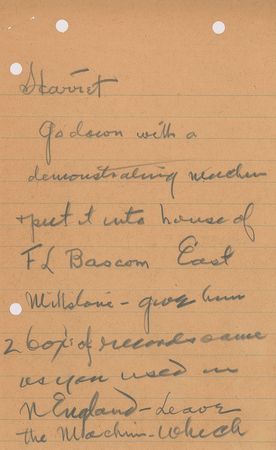 Skarriet
Go down with a
demonstrating machin
+ put it into house of
FL Bascom East
Millstone - give him
2 box's of records same
as you used in
N England - Leave
the Machin - which